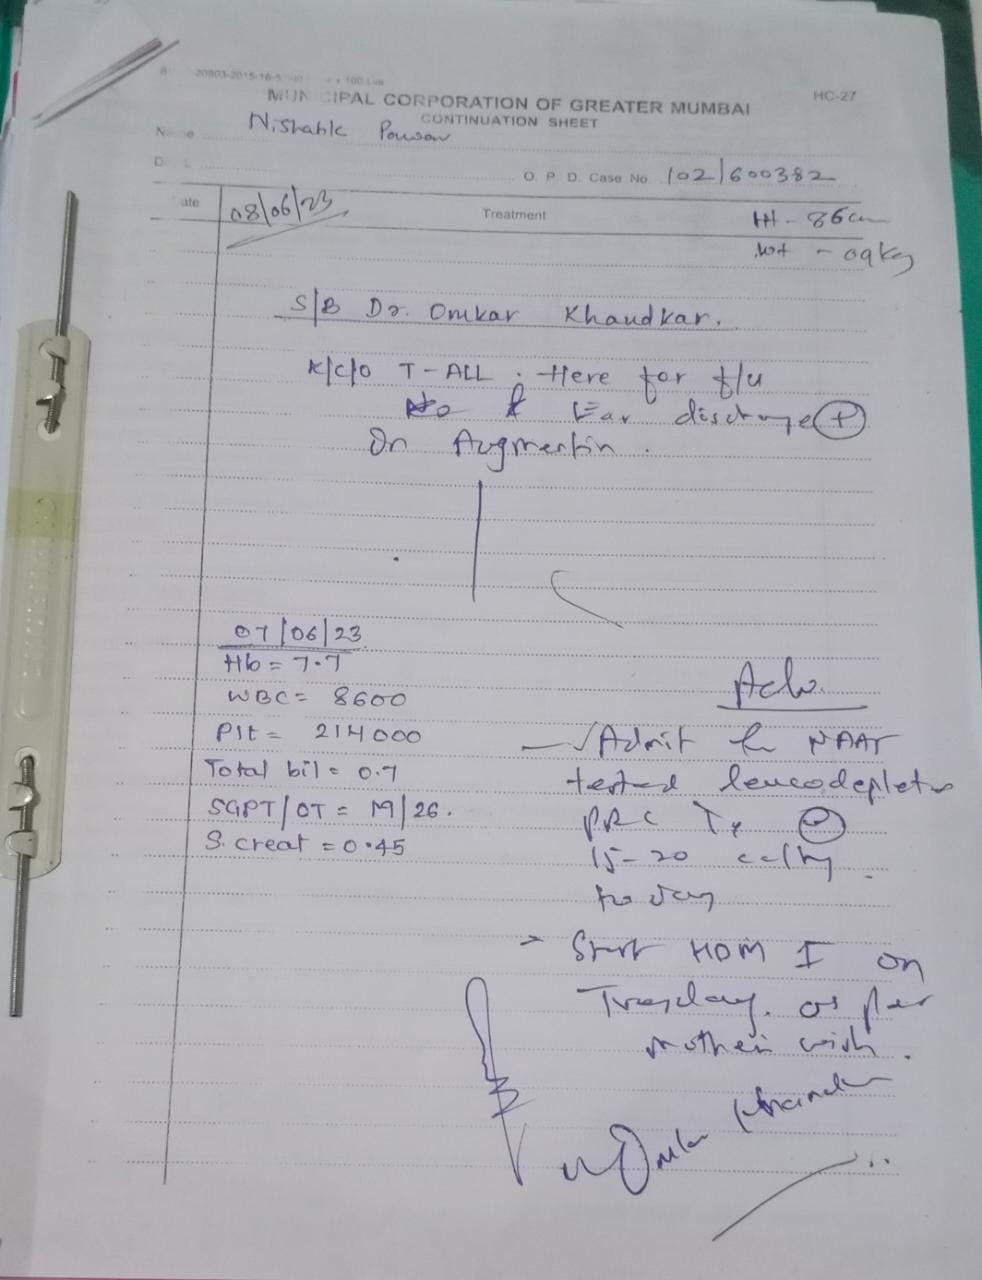 20803-2015-16
HC-27
MUNICIPAL CORPORATION OF GREATER MUMBAI
CONTINUATION SHEET
Nishable Pawar
O. P. D. Case No. 102/600382
ate 08/06/23 Treatment Ht - 86cm
wt - 09kg
S/B Dr. Omkar Khandkar.
K/c/o T-ALL. Here for f/u
Ear discharge (+)
On Augmentin.
07/06/23
Hb = 7.7
WBC = 8600
Plt = 214000
Total bil = 0.7
SGPT/OT = 19/26.
S. creat = 0.45
Adv.
Admit for NAAT
tested leucodepleted
PRC Tx
15-20 cc/kg
today
> Start HDM I on
Tuesday. as per
mother's wish.
Omkar Khandkar